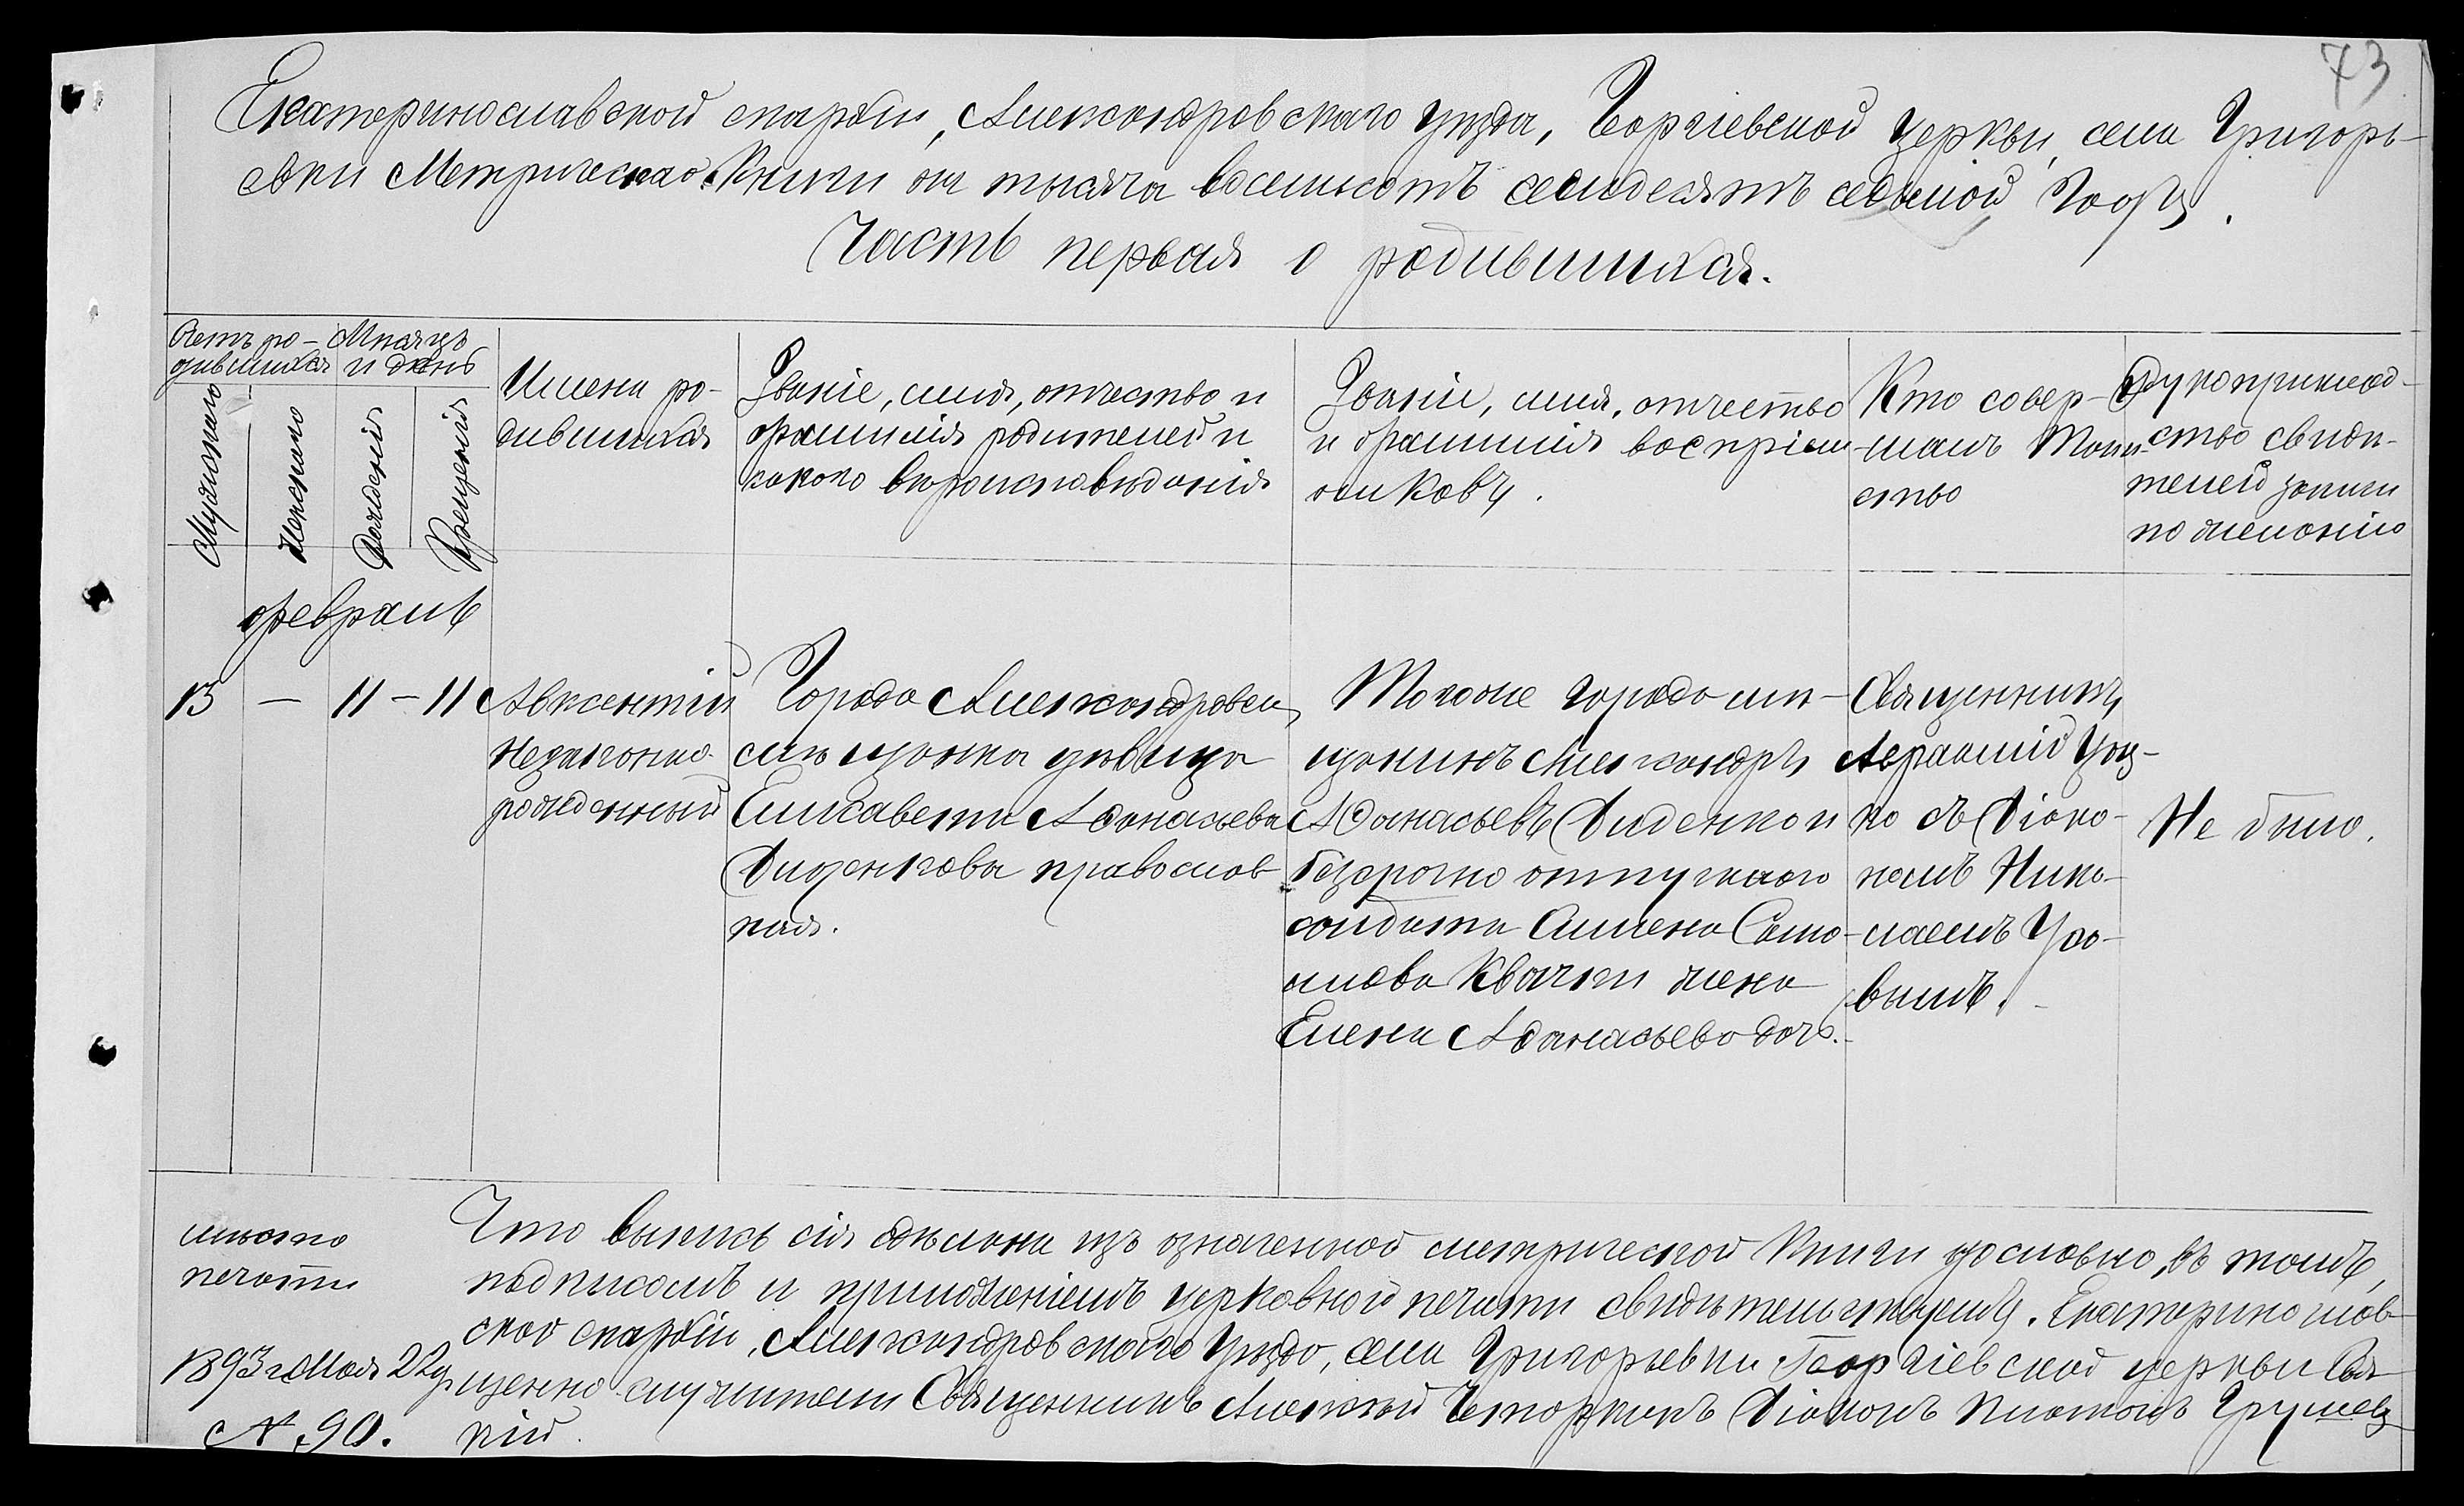 73
Екатеринославской епархіи, Александровскаго уѣзда, Георгіевской церкви, села Григорь-
евки Метрической Книги за тысяча восемьсотъ семидесятъ седьмой Годъ.
Часть первая о родившихся.
Счетъ ро-
дившихся
Мѣсяцъ
и день
Мужескаго
Женскаго
Рожденія
Крещенія
Имена ро-
дившихся
Званіе, имя, отчество и
фамилія родителей и
какого вѣроисповѣданія
Званіе, имя, отчество
и фамилія воспріем-
никовъ.
Кто совер-
шалъ Таин-
ство
Рукоприклад-
ство свидѣ-
телей записи
по желанію
февраль
13 — 11 — 11
Авксентій
незаконно-
рожденный
Города Александровска
мѣщанка дѣвица
Елисавета Аѳанасьева
Диденкова православ
ная.
Того же города мѣ-
щанинъ Александръ
Аѳанасьевъ Диденко и
безсрочно отпускнаго
солдата Симена Само-
йлова Квачки жена
Елена Аѳанасьева дочь.
Священникъ
Авраамій
ко съ Діако-
номъ Нико-
лаемъ
вымъ.
Не было.
мѣсто
печати
1893 г. Мая 22 д.
№ 90.
Что выпись сія сдѣлана изъ означенной метрической Книги дословно, въ томъ,
подписомъ и приложеніемъ церковной печати свидѣтельствуемъ. Екатеринослав-
ской епархіи, Александровскаго уѣзда, села Григорьевки Георгіевской церкви Свя-
щенно-служители Священникъ Алексѣй Діаконъ Платонъ
кій.